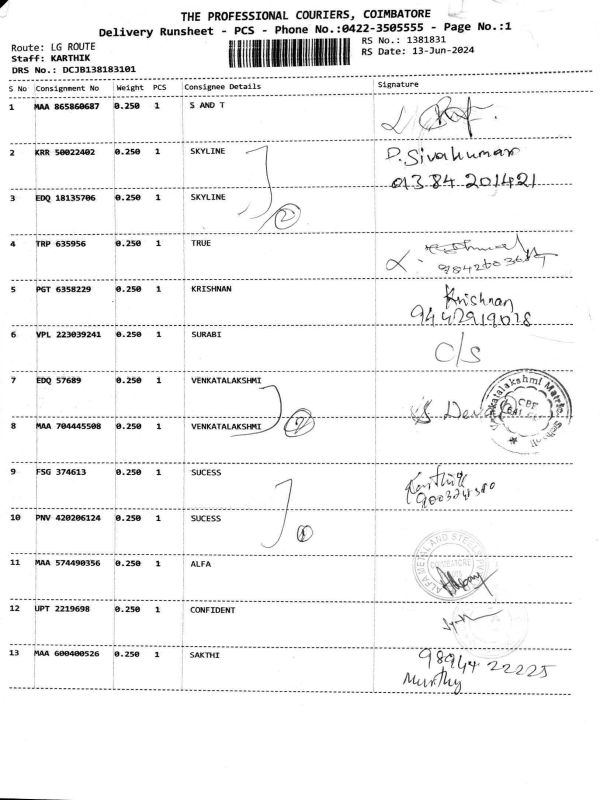 THE PROFESSIONAL COURIERS, COIMBATORE
Delivery Runsheet - PCS - Phone No.:0422-3505555 - Page No.:1
Route: LG ROUTE
RS No.: 1381831
Staff: KARTHIK
RS Date: 13-Jun-2024
DRS No.: DCJB138183101
S No Consignment No Weight PCS Consignee Details Signature
1 MAA 865860687 0.250 1 S AND T
2 KRR 50022402 0.250 1 SKYLINE D. Sivakumar
01384 201421
3 EDQ 18135706 0.250 1 SKYLINE
2
4 TRP 635956 0.250 1 TRUE
5 PGT 6358229 0.250 1 KRISHNAN Krishnan
9442919018
6 VPL 223039241 0.250 1 SURABI C/S
7 EDQ 57689 0.250 1 VENKATALAKSHMI
Venkatalakshmi Matric. School
CBE
8 MAA 704445508 0.250 1 VENKATALAKSHMI
2
9 FSG 374613 0.250 1 SUCESS Karthik
10 PNV 420206124 0.250 1 SUCESS
11 MAA 574490356 0.250 1 ALFA
ALFA METAL AND STEEL
COIMBATORE
12 UPT 2219698 0.250 1 CONFIDENT
13 MAA 600400526 0.250 1 SAKTHI 98944 22225
Murthy